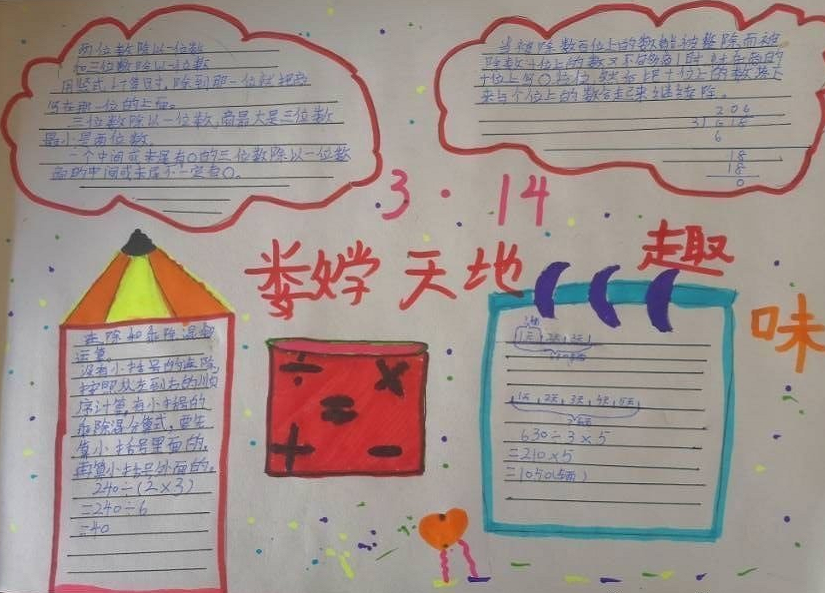 两位数除以一位数
和三位数除以一位数
用竖式计算时,除到那一位就把商
写在那一位的上面。
三位数除以一位数,商最大是三位数
最小是两位数,
一个中间或末尾有0的三位数除以一位数
商的中间或末尾不一定有0。
当被除数百位上的数能被整除,而被
除数十位上的数又不够商1时,就在商的
十位上写0占位,
来与个位上的数合起来继续除。
206
3)618
6
18
18
0
3·14
天地
趣
味
连除和乘除混合
运算
没有小括号的连除,
按照从左到右的顺
序计算,有小括号的
乘除混合算式,要先
算小括号里面的,
再算小括号外面的。
240÷(2×3)
=240÷6
=40
÷ ×
=
+ −
1天 2天 3天
1天 2天 3天 4天 5天
630÷3×5
=210×5
=1050